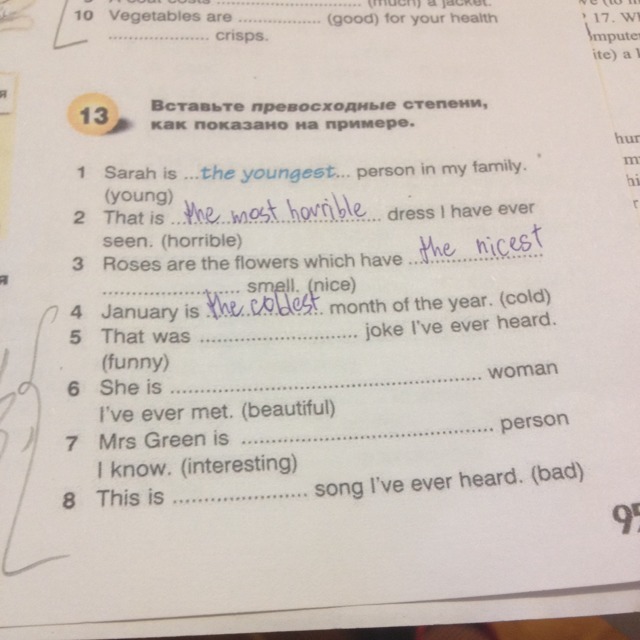 (much) a jacket.
10 Vegetables are .................... (good) for your health
........................ crisps.
13
Вставьте превосходные степени,
как показано на примере.
1 Sarah is ...the youngest... person in my family.
(young)
2 That is ...the most horrible... dress I have ever
seen. (horrible)
3 Roses are the flowers which have ...the nicest
........................ smell. (nice)
4 January is the coldest month of the year. (cold)
5 That was ........................... joke I've ever heard.
(funny)
6 She is ...................................................... woman
I've ever met. (beautiful)
7 Mrs Green is ........................................... person
I know. (interesting)
8 This is ....................... song I've ever heard. (bad)